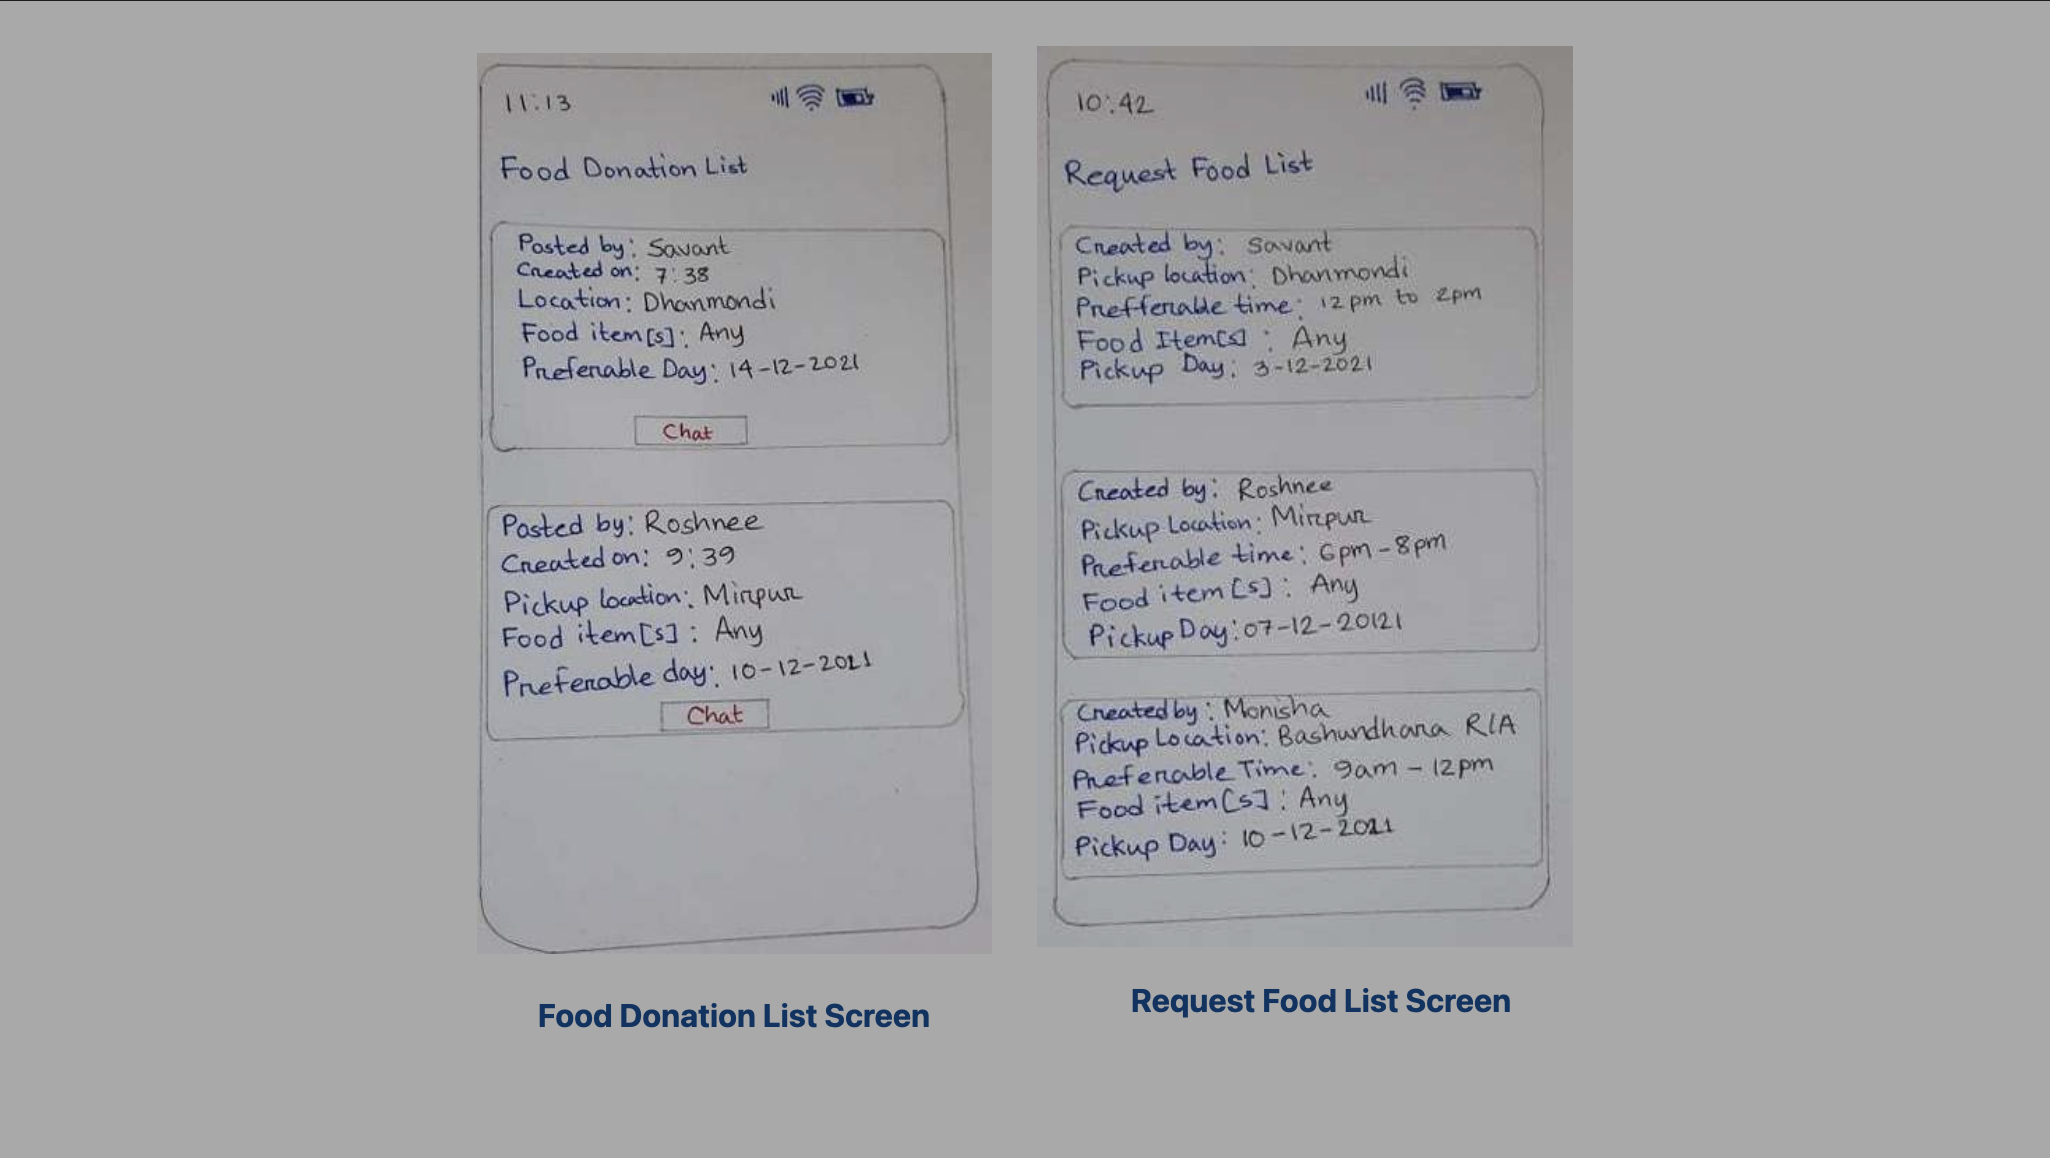 11:13
Food Donation List
Posted by: Savant
Created on: 7:38
Location: Dhanmondi
Food item[s]: Any
Preferable Day: 14-12-2021
Chat
Posted by: Roshnee
Created on: 9:39
Pickup location: Mirpur
Food item[s]: Any
Preferable day: 10-12-2021
Chat
Food Donation List Screen
10:42
Request Food List
Created by: Savant
Pickup location: Dhanmondi
Prefferable time: 12pm to 2pm
Food Item[s]: Any
Pickup Day: 3-12-2021
Created by: Roshnee
Pickup Location: Mirpur
Preferable time: 6pm-8pm
Food item[s]: Any
Pickup Day: 07-12-20121
Created by: Monisha
Pickup Location: Bashundhara R/A
Preferable Time: 9am - 12pm
Food item[s]: Any
Pickup Day: 10-12-2021
Request Food List Screen